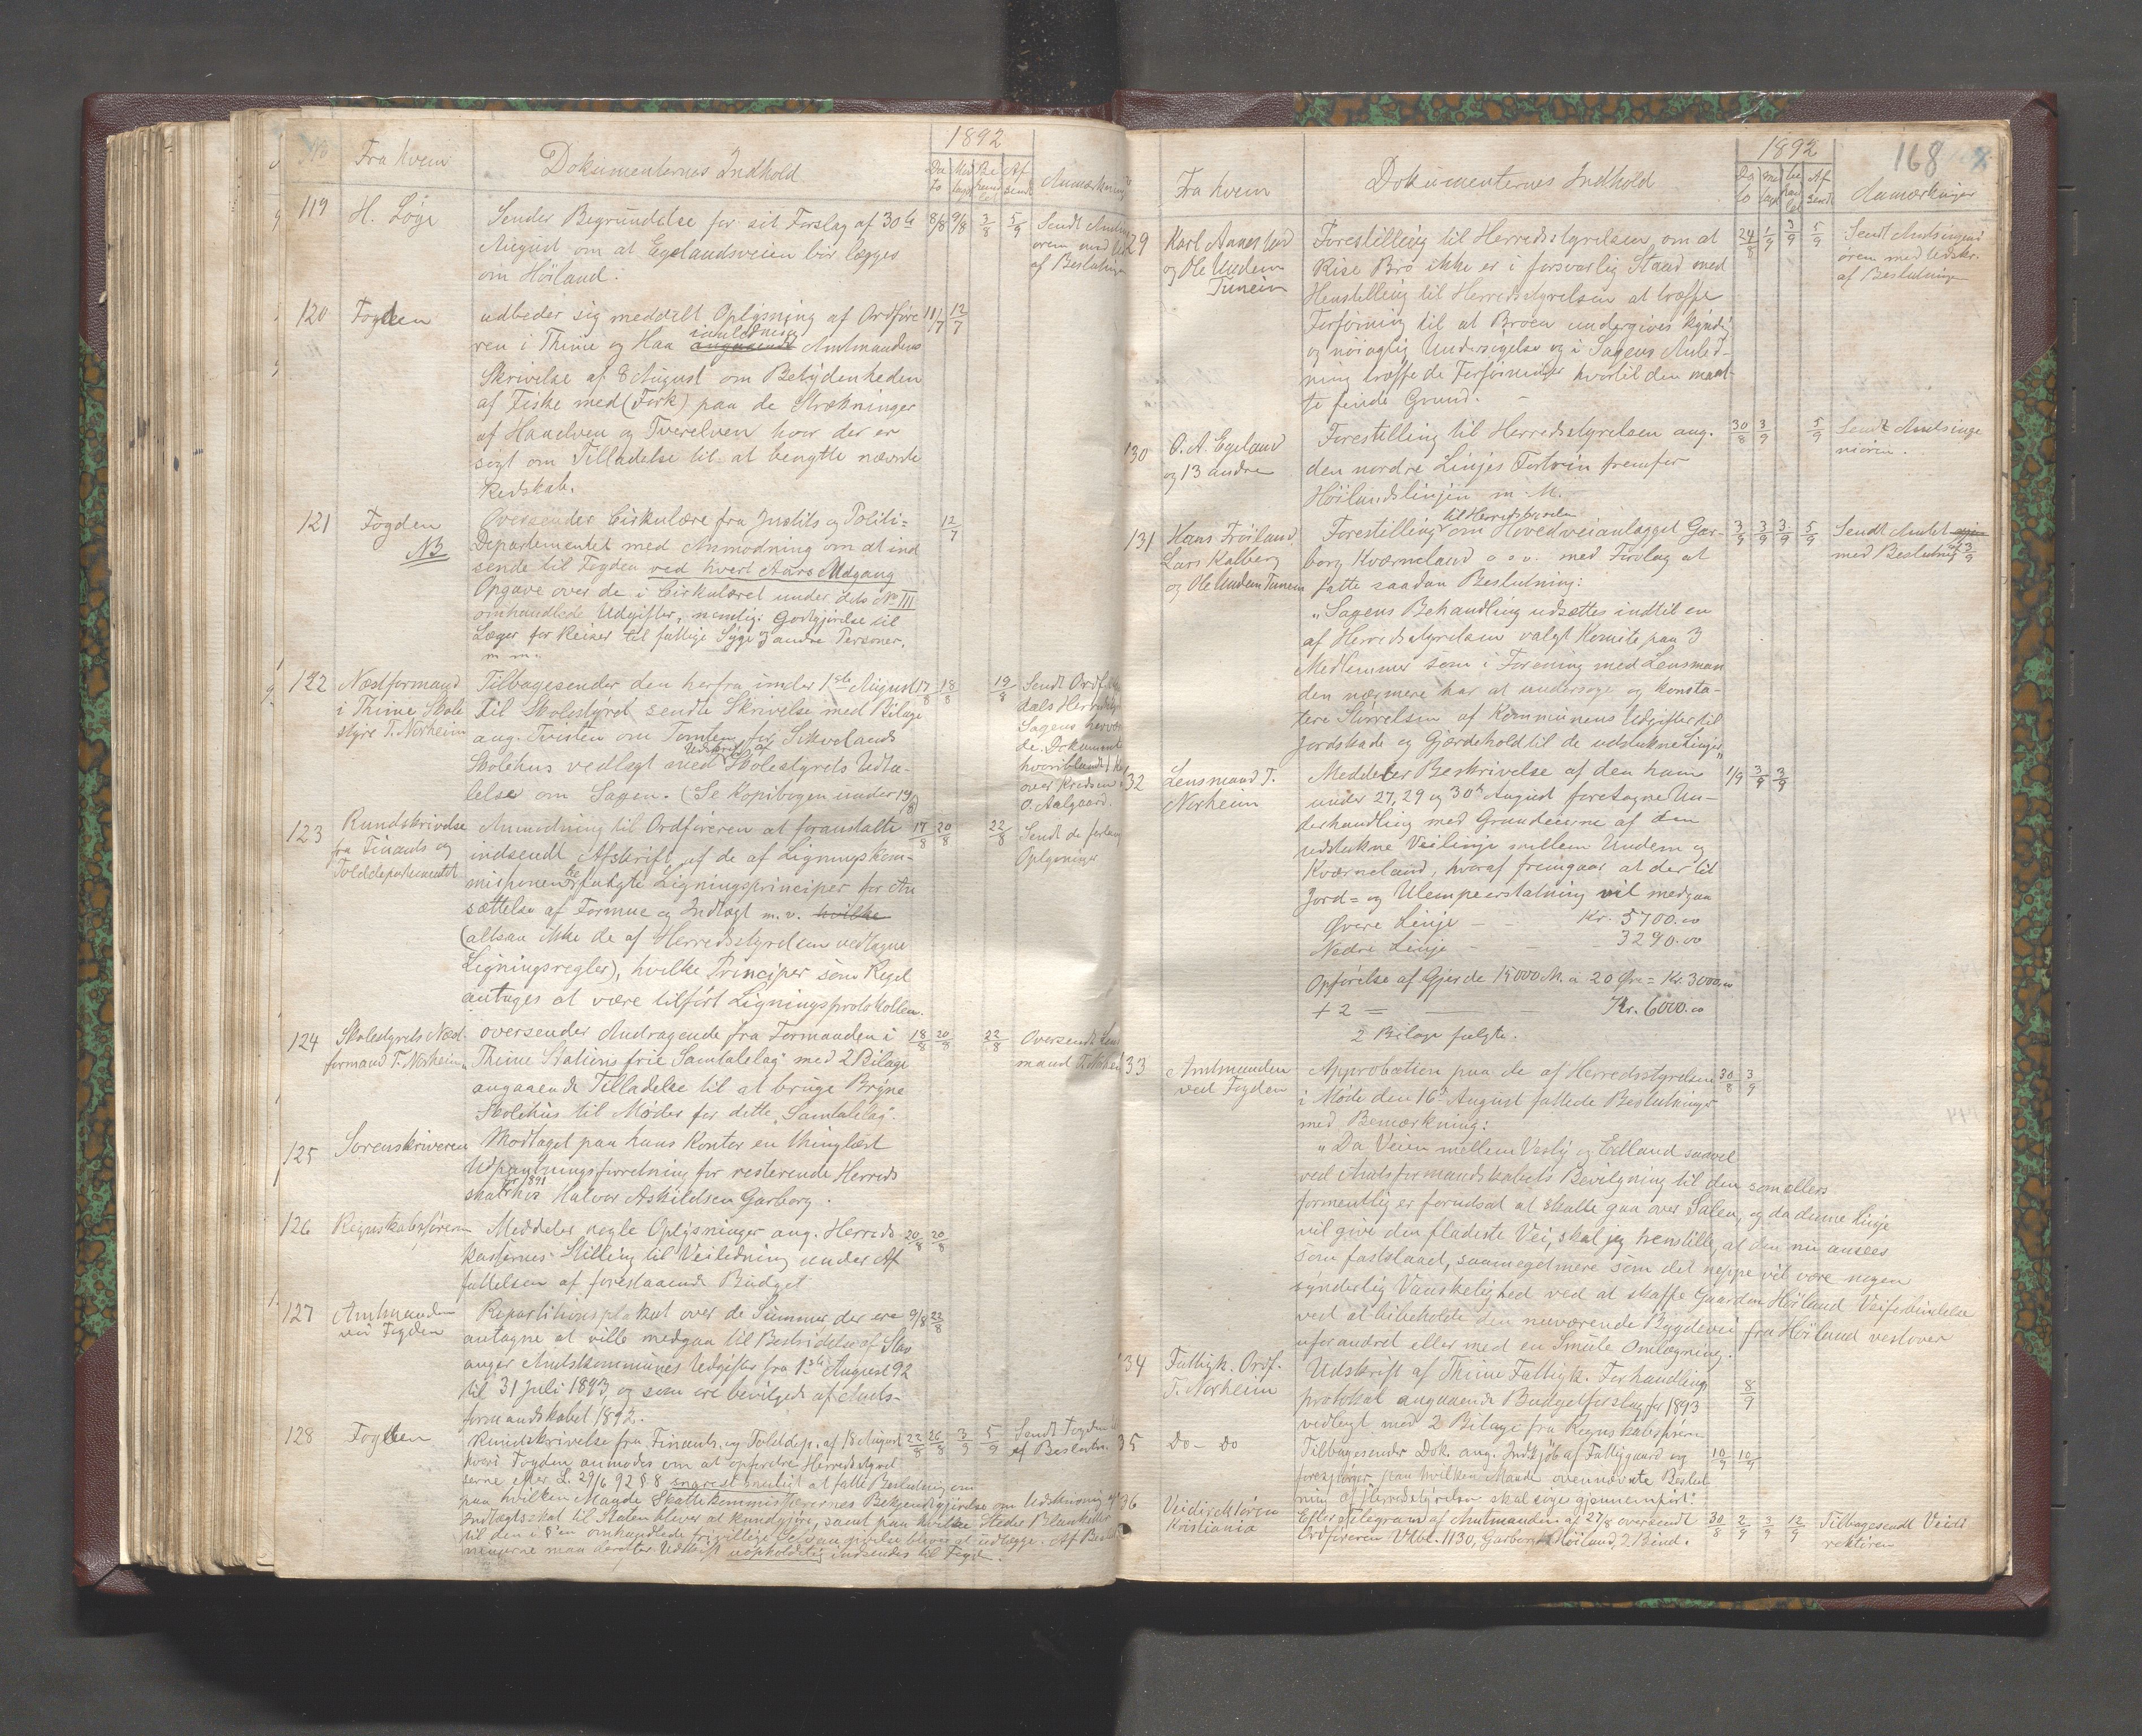 No
Fra hvem
Dokumenternes Indhold
1892
Da to
Mod tagt
Be hand let
Af sendt
Anmærkninger
119 H. Løge
Sender Begrundelse for sit Forslag af 30te 8/8 9/8 3/8 5/9
August om at Egelandsveien bør lægges
om Høiland.
Sendt Amtsin
øren med Uds
af Beslutnin
120 Fogden
udbeder sig meddelt Oplysning af Ordføre 11/7 12/7
ren i Thime og Haa angaaende Amtmandens
Skrivelse af 8 August om Betydenheden
af Fiske med (Fork) paa de Strækninger
af Haaelven og Tverelven hvor der er
søgt om Tilladelse til at benytte nævnte
Redskab.
121 Fogden
NB
Oversender Cirkulære fra Justits og Politi= 12/7
Departementet med Anmodning om at ind
sende til Fogden ved hvert Aars Udgang
Opgave over de i Cirkulæret under dets No III
omhandlede Udgifter, nemlig: Godtgjørelse til
Læger for Reiser til fattige Syge og andre Personer.
m m.
122 Næstformand
i Thime Skole
styre T. Norheim
Tilbagesender den herfra under 1ste August 17/8 18/8 19/8
til Skolestyret sendte Skrivelse med Bilage
ang. Tvisten om Tomten for Sikvelands
Skolehus vedlagt med Udskrift af Skolestyrets Udta=
lelse om Sagen. (Se Kopibogen under 19/8)
Sendt Ordf.
dals Herredsty
Sagens herve
de. Dokument
hvoriblandt
over Kredsen
O. Aalgaard.
123 Rundskrivelse
fra Finants og
Tolddepartementet
Anmodning til Ordføreren at foranstalte 17/8 20/8 22/8
indsendt Afskrift af de af Ligningskom=
misjonen befulgte Ligningsprinciper for An
sættelse af Formue og Indtægt m. v. hvilke
(altsaa ikke de af Herredsstyrelsen vedtagne
Ligningsregler), hvilke Principer som Regel
antages at være tilført Ligningsprotokollen.
Sendt de forlang
Oplysninger
124 Skolestyrets Næst
formand T. Norheim
oversender Andragende fra Formanden i 18/8 20/8 22/8
„Thime Stations frie Samtalelag" med 2 Bilage
angaaende Tilladelse til at bruge Bryne
Skolehus til Møder for dette „Samtalelag".
Oversendt Lens
mand T. Norheim
125 Sorenskriveren
Modtaget paa hans Kontor en thinglæst
Udpantningsforretning for resterende Herreds
skat for 1891 hos Halvor Askildsen Garborg.
126 Regnskabsføreren
Meddeler nogle Oplysninger ang. Herreds 20/8 20/8
kassernes Stilling til Veiledning under Af
fattelsen af forestaaende Budget
127 Amtmanden
ved Fogden
Repartitionsplakat over de Summer der ere 9/8 22/8
antagne at ville medgaa til Bestridelse af Stav
anger Amtskommunes Udgifter fra 1ste August 92
til 31 Juli 1893, og som ere bevilgede af Amts=
formandskabet 1892.
128 Fogden
Rundskrivelse fra Finants og Tolddep. af 18 August 22/8 26/8 3/9 5/9
hvori Fogden anmodes om at opfordre Herredsstyrel
serne efter L. 29/6 92 § 8 snarest muligt at fatte Beslutning om
paa hvilken Maade Skattekommissionernes Bekjendtgjørelse om Udskrivning af
Indtægtsskat til Staten bliver at kundgjøre, samt paa hvilke Steder Blanketter
til den i §'en omhandlede frivillige Selvangivelse bliver at udlægge. Af Beslut
ningerne maa derefter Udskrift uopholdelig indsendes til Fogd.
Sendt Fogden
af Beslutn.
168
Fra hvem
Dokumenternes Indhold
1892
Da to
Mod tagt
be hand let
Af sendt
Anmærkninger
29 Karl Aanestad
og Ole Undem
Tunein
Forestilling til Herredsstyrelsen om at 24/8 1/9 3/9 5/9
Rise Bro ikke er i forsvarlig Stand med
Henstilling til Herredsstyrelsen at træffe
Forføining til at Broen undergives kyndig
og nøiagtig Undersøgelse og i Sagens Anled=
ning træffe de Forføininger hvortil den maat=
te finde Grund.
Sendt Amtsingeni
øren med Udskr.
af Beslutning
130 O. A. Egeland
og 13 andre
Forestilling til Herredsstyrelsen ang. 30/8 3/9 5/9
den nordre Linjes Fortrin fremfor
Høilandslinjen m. M.
Sendt Amtsinge
niøren.
131 Hans Frøiland
Lars Kalberg
og Ole Undem Tunein
Forestilling til Herredsstyrelsen om Hovedveianlægget Gar= 3/9 3/9 3/9 5/9
borg Kværneland o s v. med Forslag at
fatte saadan Beslutning:
„Sagens Behandling udsættes indtil en
af Herredsstyrelsen valgt Komite paa 3
Medlemmer som i Forening med Lensman
den nærmere har at undersøge og konsta=
tere Størrelsen af Kommunens Udgifter til
Jordskade og Gjærdehold til de udstukne Linjer"
Sendt Amtet
med Beslutning af 3/9
32 Lensmand T.
Norheim
Meddeler Beskrivelse af den ham 1/9 3/9 3/9
under 27, 29 og 30te August foretagne Un=
derhandling med Grundeierne af den
udstukne Veilinje mellem Undem og
Kværneland, hvoraf fremgaar at der til
Jord= og Ulempeerstatning vil medgaa
Øvere Linje - - Kr. 5700.00
Nedre Linje - - - 3290.00
Opførelse af Gjerde 15000 M. a 20 Øre = Kr. 3000.00
+ 2 = — - Kr. 6000.00
2 Bilage fulgte.
33 Amtmanden
ved Fogden
Approbation paa de af Herredsstyrelsen 30/8 3/9
i Møde den 16de August fattede Beslutninger
med Bemærkning:
„Da Veien mellem Vesly og Edland saavel
ved Amtsformandskabets Bevilgning til den som ellers
formentlig er forudsat at skulle gaa over Salen, og da denne Linje
vil give den fladeste Vei, skal jeg henstille, at den nu ansees
som fastslaaet, saameget mere som det neppe vil være nogen
synderlig Vanskelighed ved at skaffe Gaarden Høiland Veiforbindelse
ved at bibeholde den nuværende Bygdevei fra Høiland vestover
uforandret eller med en Smule Omlægning.
34 Fattigk. Ordf.
T. Norheim
Udskrift af Thime Fattigk. Forhandlings
protokol angaaende Budgetforslag for 1893 8/9
vedlagt med 2 Bilage fra Regnskabsføreren
35 Do - Do
Tilbagesender Dok. ang. Indkjøb af Fattiggaard og 10/9 10/9
forespørger paa hvilken Maade ovennævnte Beslut
ning af Herredsstyrelsen skal søges gjennemført.
36 Veidirektøren
Kristiania
Efter Telegram af Amtmanden af 27/8 oversendt 30/8 2/9 3/9 12/9
Ordføreren Vkbl. 1130, Garborg Høiland, 2 Bind.
Tilbagesendt Veidi
rektøren